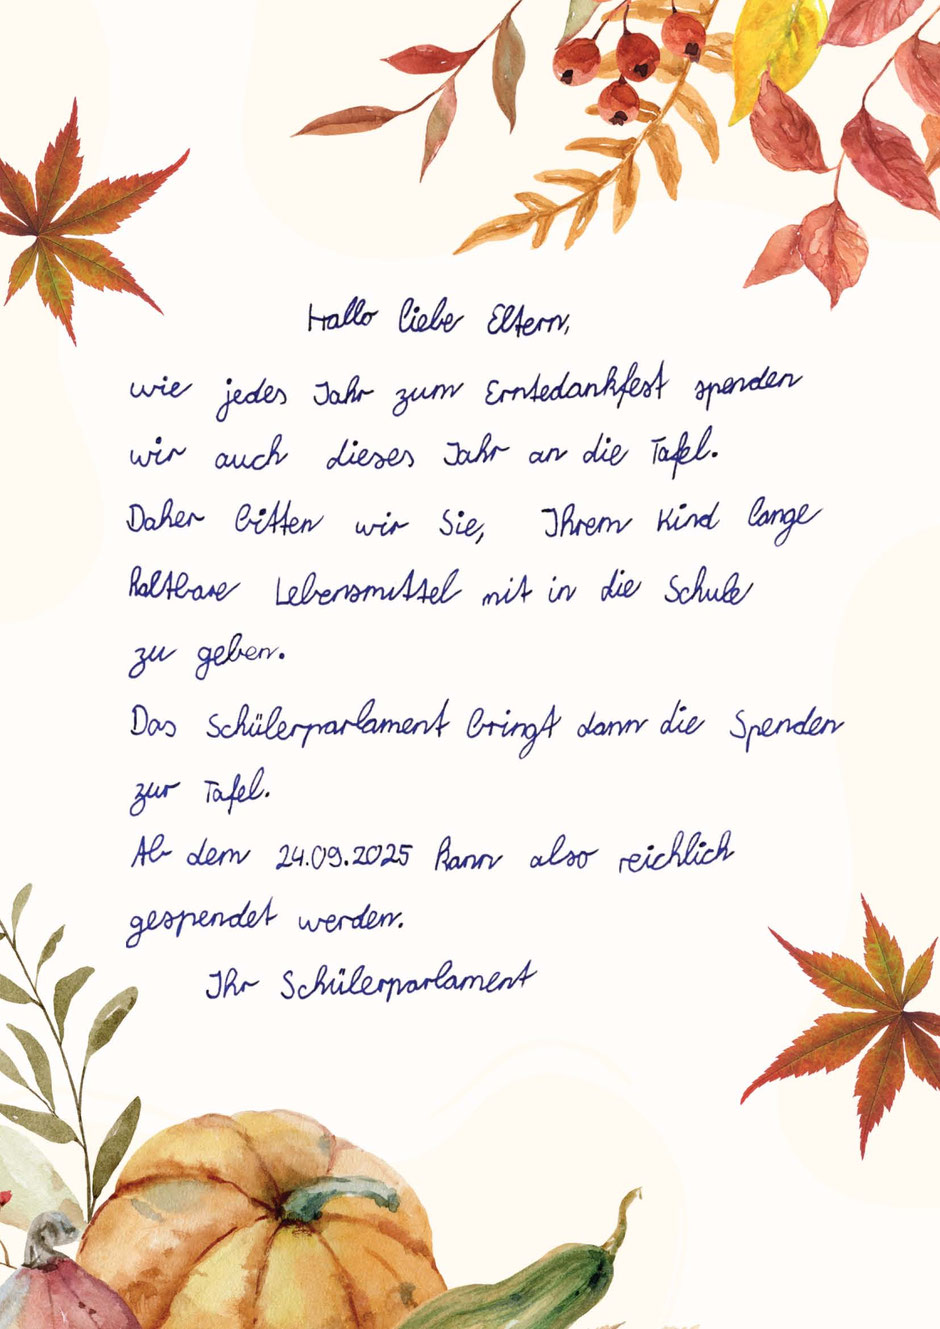 Hallo liebe Eltern,
wie jedes Jahr zum Erntedankfest spenden
wir auch dieses Jahr an die Tafel.
Daher bitten wir Sie, Ihrem Kind lange
haltbare Lebensmittel mit in die Schule
zu geben.
Das Schülerparlament bringt dann die Spenden
zur Tafel.
Ab dem 24.09.2025 kann also reichlich
gespendet werden.
Ihr Schülerparlament